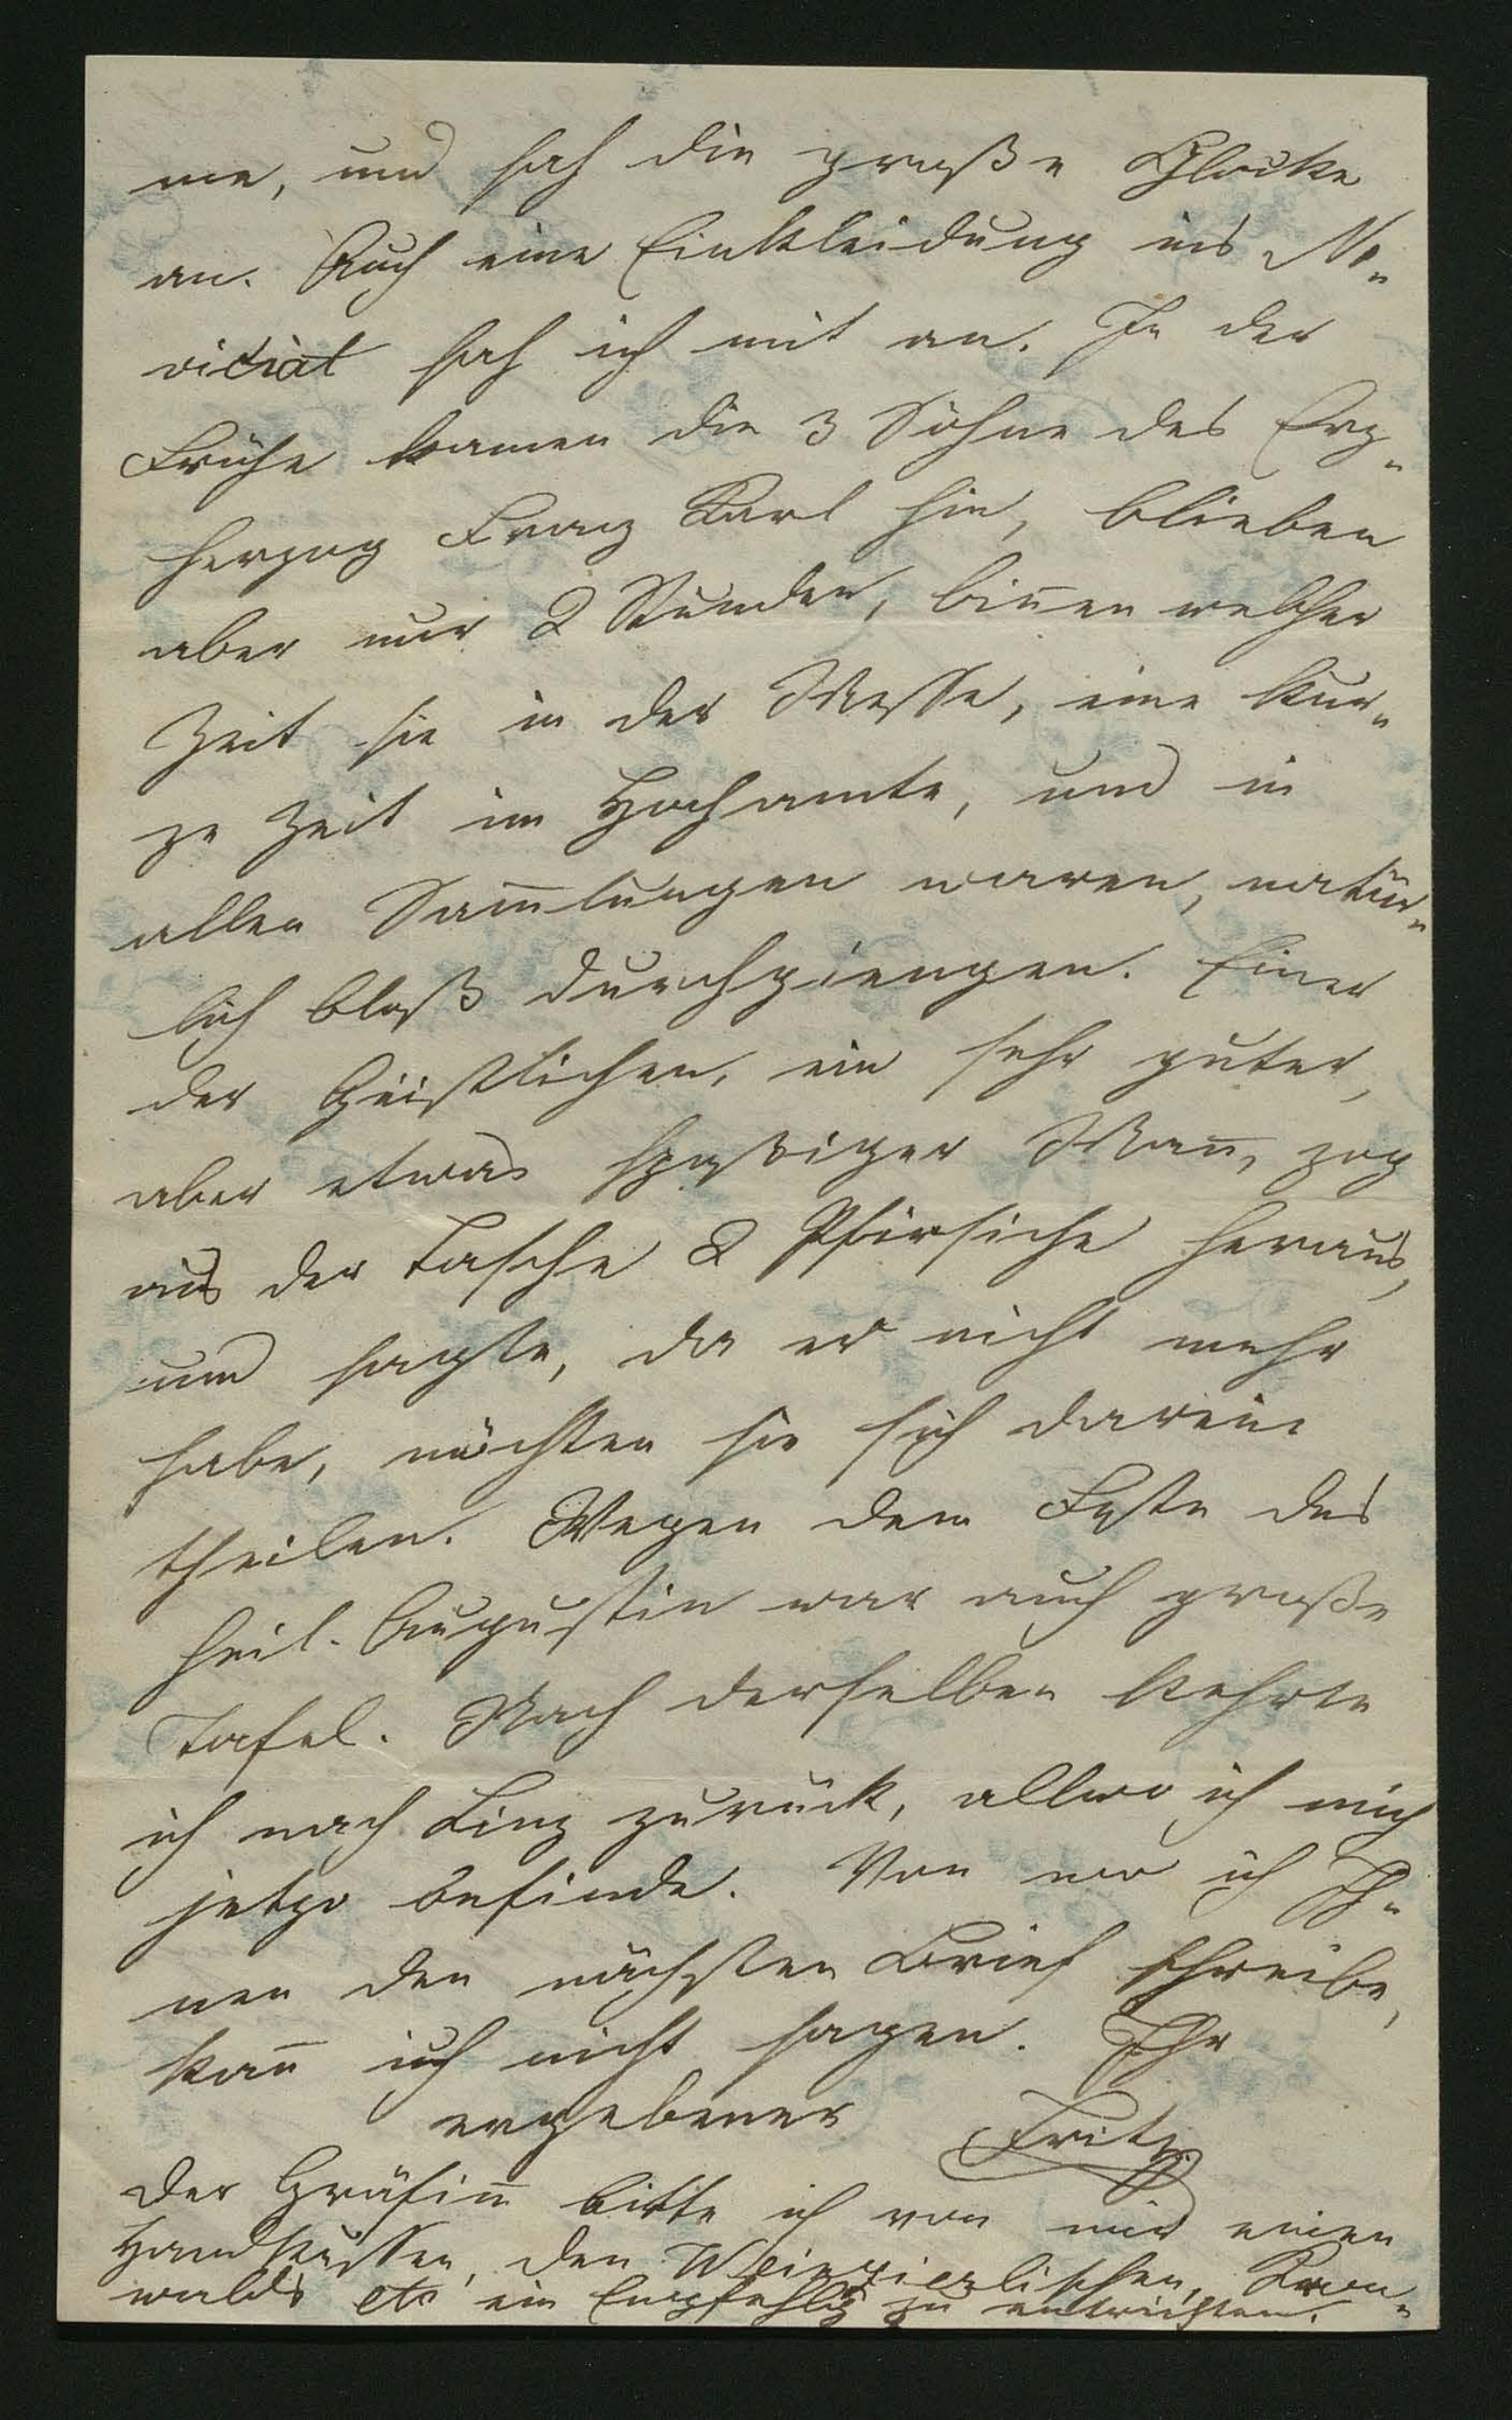 me, und sah die große Glocke
an. Auch eine Einkleidung ins No-
vitiat sah ich mit an. In der
Frühe kamen die 3 Söhne des Erz-
herzog Franz Karl hin, blieben
aber nur 2 Stunden, binnen welcher
Zeit sie in der Messe, eine kur-
ze Zeit im Hochamte, und in
allen Sam̅lungen waren, natür-
lich bloß durchgiengen. Einer
der Geistlichen, ein sehr guter,
aber etwas spaßiger Man̅, zog
aus der Tasche 2 Pfirsiche heraus,
und sagte, da er nicht mehr
habe, möchten sie sich darein
theilen. Wegen dem Feste des
heil. Augustin war auch große
Tafel. Nach derselben kehrte
ich nach Linz zurück, allwo ich mich
jetzo befinde. Von wo ich Ih-
nen den nächsten Brief schreibe,
kan̅ ich nicht sagen. Ihr
ergebener Fritz
Der Gräfin̅ bitte ich von mir einen
Handkuss, den Weinzierlischen,
walds etc ein Empfehlg zu entrichten.